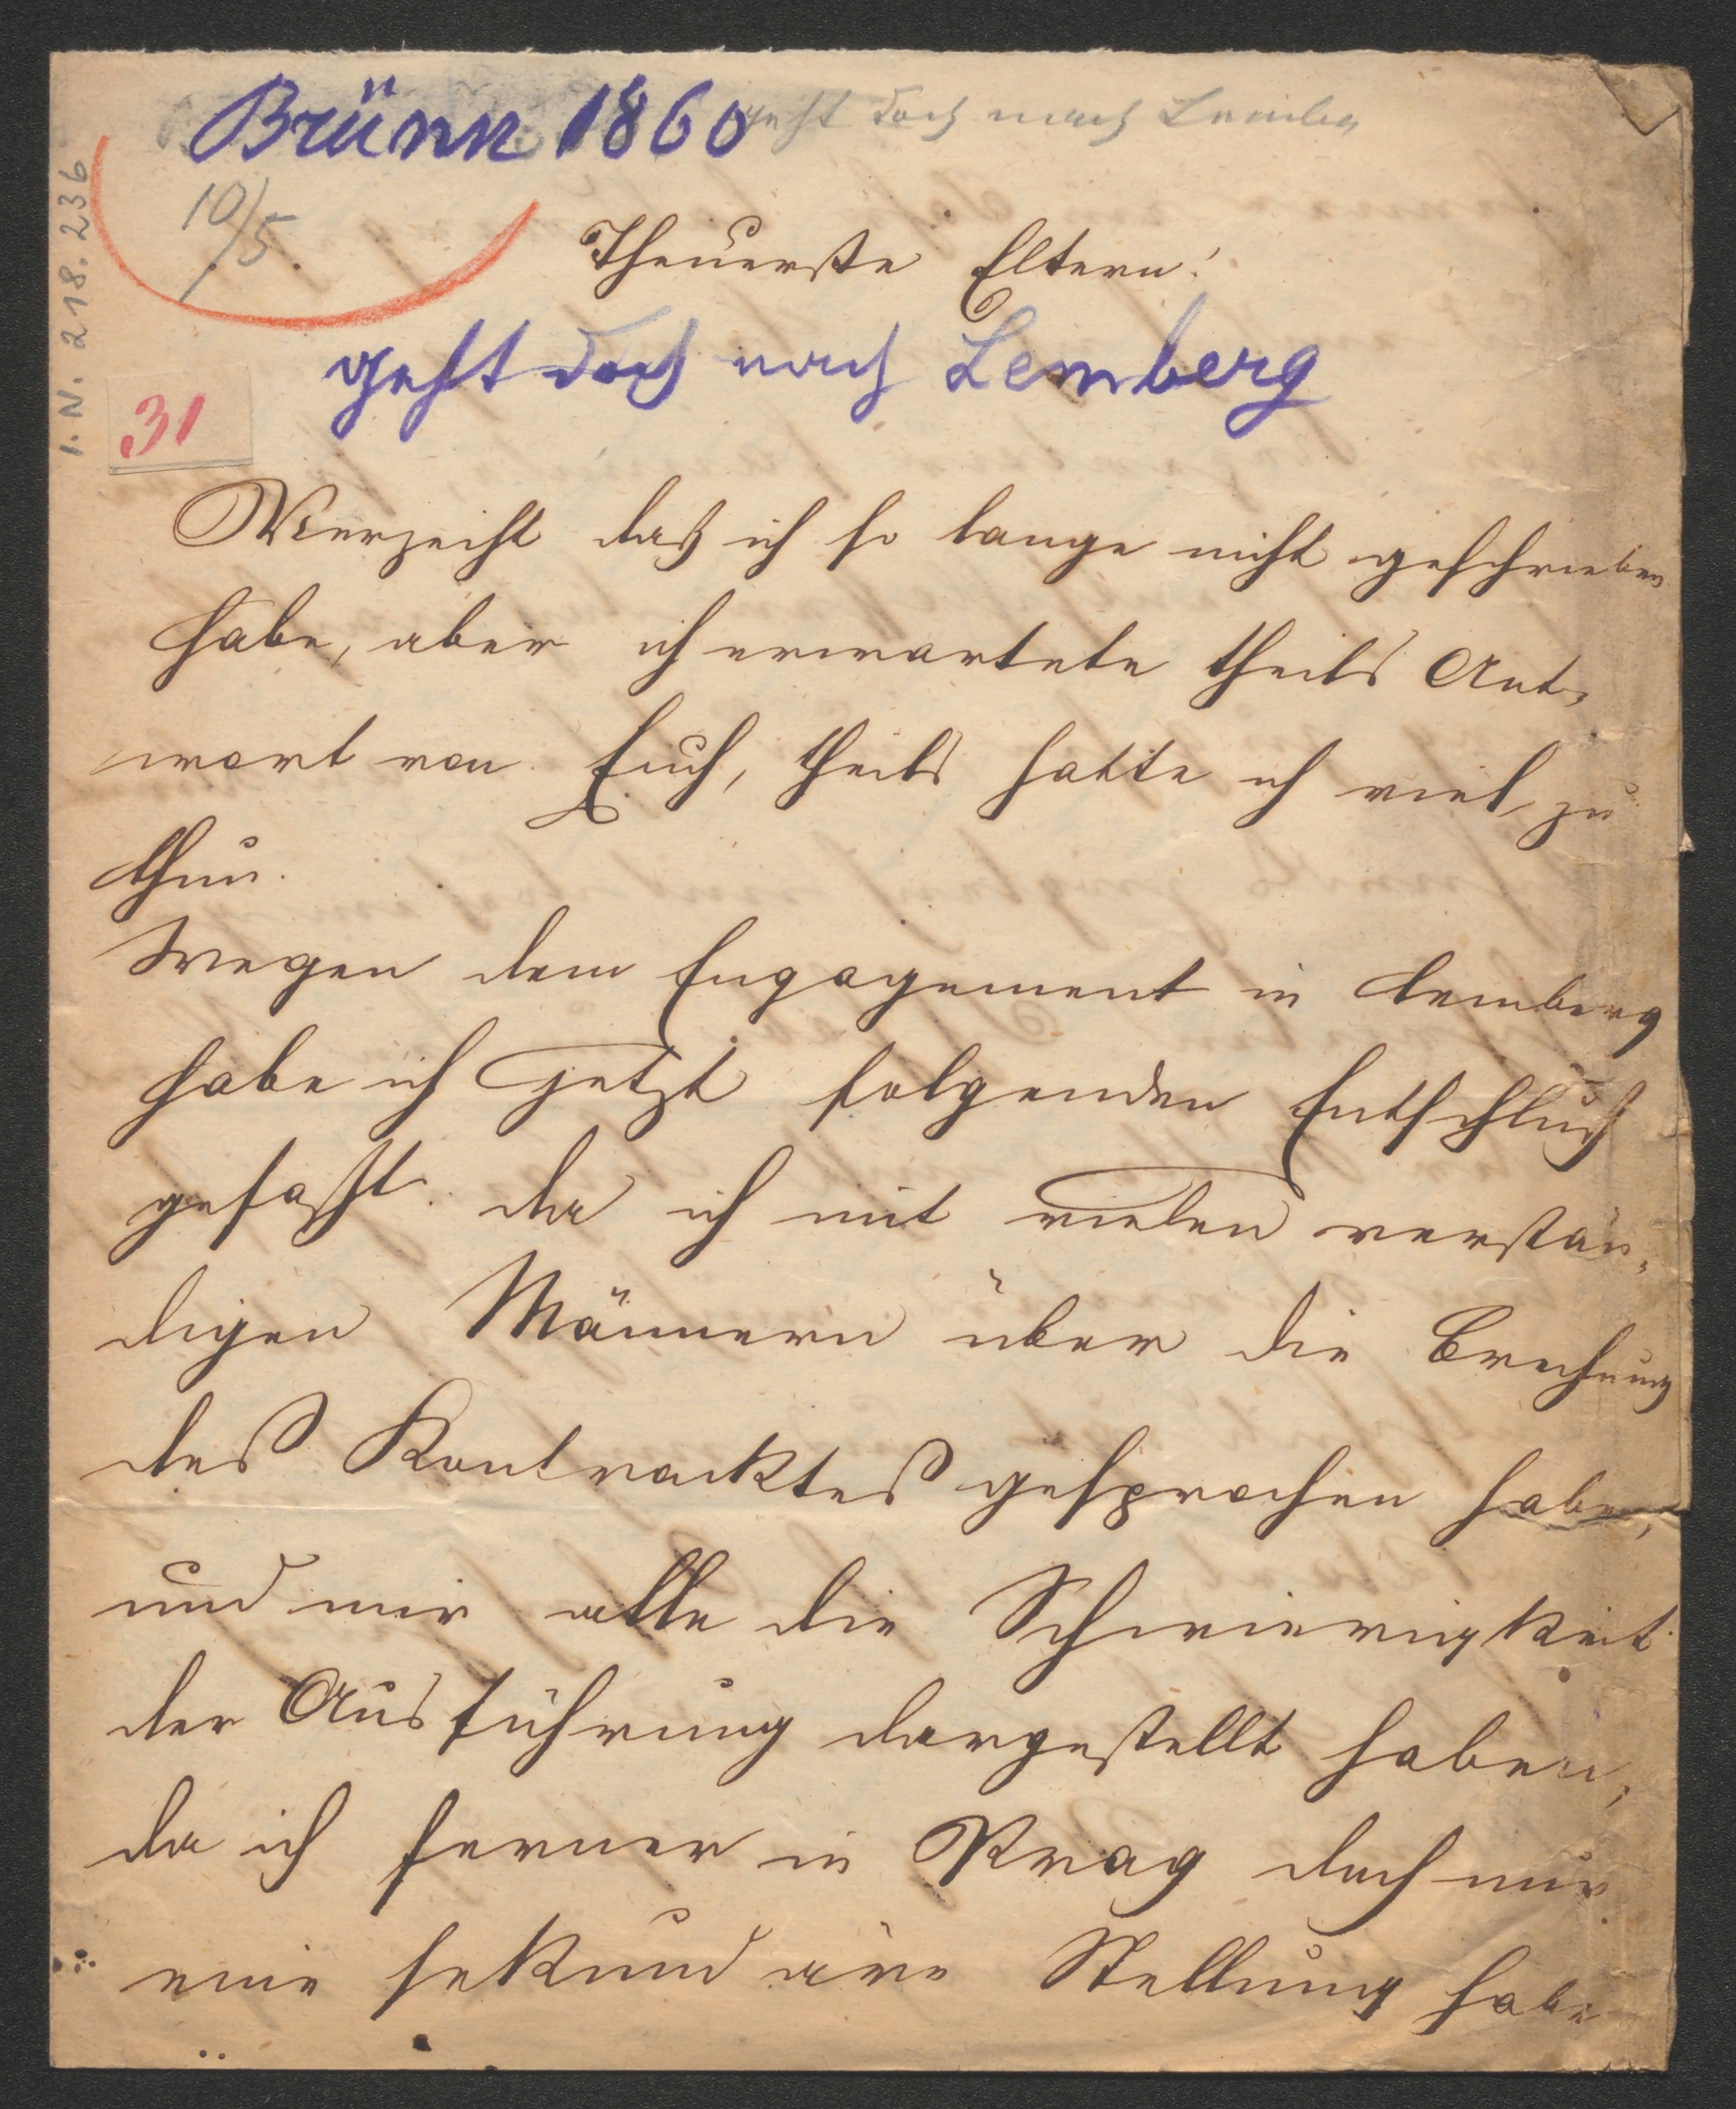 Brünn 1860 geht doch nach Lemberg
10/5.
I.N. 218.236
Theuerste Eltern!
geht doch nach Lemberg
31
Verzeiht daß ich so lange nicht geschrieben
habe, aber ich erwartete theils Ant-
wort von Euch, theils hatte ich viel zu
thun.
Wegen dem Engagement in Lemberg
habe ich jetzt folgenden Entschluß
gefaßt. da ich mit vielen verstän-
digen Männern über die Brechung
des Kontracktes gesprochen habe,
und mir alle die Schwierigkeit
der Ausführung dargestellt haben,
da ich ferner in Prag doch nur
eine sekundäre Stellung habe